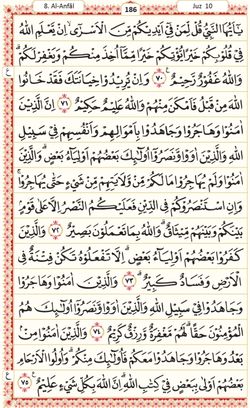 8. Al-Anfâl 186 Juz 10
يٰٓاَيُّهَا النَّبِيُّ قُلْ لِّمَنْ فِيْٓ اَيْدِيْكُمْ مِّنَ الْاَسْرٰٓى اِنْ يَّعْلَمِ اللّٰهُ
فِيْ قُلُوْبِكُمْ خَيْرًا يُّؤْتِكُمْ خَيْرًا مِّمَّآ اُخِذَ مِنْكُمْ وَيَغْفِرْ لَكُمْ
وَاللّٰهُ غَفُوْرٌ رَّحِيْمٌ ٧٠ وَاِنْ يُّرِيْدُوْا خِيَانَتَكَ فَقَدْ خَانُوا
اللّٰهَ مِنْ قَبْلُ فَاَمْكَنَ مِنْهُمْ وَاللّٰهُ عَلِيْمٌ حَكِيْمٌ ٧١ اِنَّ الَّذِيْنَ
اٰمَنُوْا وَهَاجَرُوْا وَجَاهَدُوْا بِاَمْوَالِهِمْ وَاَنْفُسِهِمْ فِيْ سَبِيْلِ
اللّٰهِ وَالَّذِيْنَ اٰوَوْا وَّنَصَرُوْٓا اُولٰۤىِٕكَ بَعْضُهُمْ اَوْلِيَاۤءُ بَعْضٍ وَالَّذِيْنَ
اٰمَنُوْا وَلَمْ يُهَاجِرُوْا مَا لَكُمْ مِّنْ وَّلَايَتِهِمْ مِّنْ شَيْءٍ حَتّٰى يُهَاجِرُوْا
وَاِنِ اسْتَنْصَرُوْكُمْ فِى الدِّيْنِ فَعَلَيْكُمُ النَّصْرُ اِلَّا عَلٰى قَوْمٍۢ
بَيْنَكُمْ وَبَيْنَهُمْ مِّيْثَاقٌ وَاللّٰهُ بِمَا تَعْمَلُوْنَ بَصِيْرٌ ٧٢ وَالَّذِيْنَ
كَفَرُوْا بَعْضُهُمْ اَوْلِيَاۤءُ بَعْضٍ اِلَّا تَفْعَلُوْهُ تَكُنْ فِتْنَةٌ فِى
الْاَرْضِ وَفَسَادٌ كَبِيْرٌ ٧٣ وَالَّذِيْنَ اٰمَنُوْا وَهَاجَرُوْا
وَجَاهَدُوْا فِيْ سَبِيْلِ اللّٰهِ وَالَّذِيْنَ اٰوَوْا وَّنَصَرُوْٓا اُولٰۤىِٕكَ هُمُ
الْمُؤْمِنُوْنَ حَقًّا لَهُمْ مَّغْفِرَةٌ وَّرِزْقٌ كَرِيْمٌ ٧٤ وَالَّذِيْنَ اٰمَنُوْا مِنْۢ
بَعْدُ وَهَاجَرُوْا وَجَاهَدُوْا مَعَكُمْ فَاُولٰۤىِٕكَ مِنْكُمْ وَاُولُوا الْاَرْحَامِ
بَعْضُهُمْ اَوْلٰى بِبَعْضٍ فِيْ كِتٰبِ اللّٰهِ اِنَّ اللّٰهَ بِكُلِّ شَيْءٍ عَلِيْمٌ ٧٥